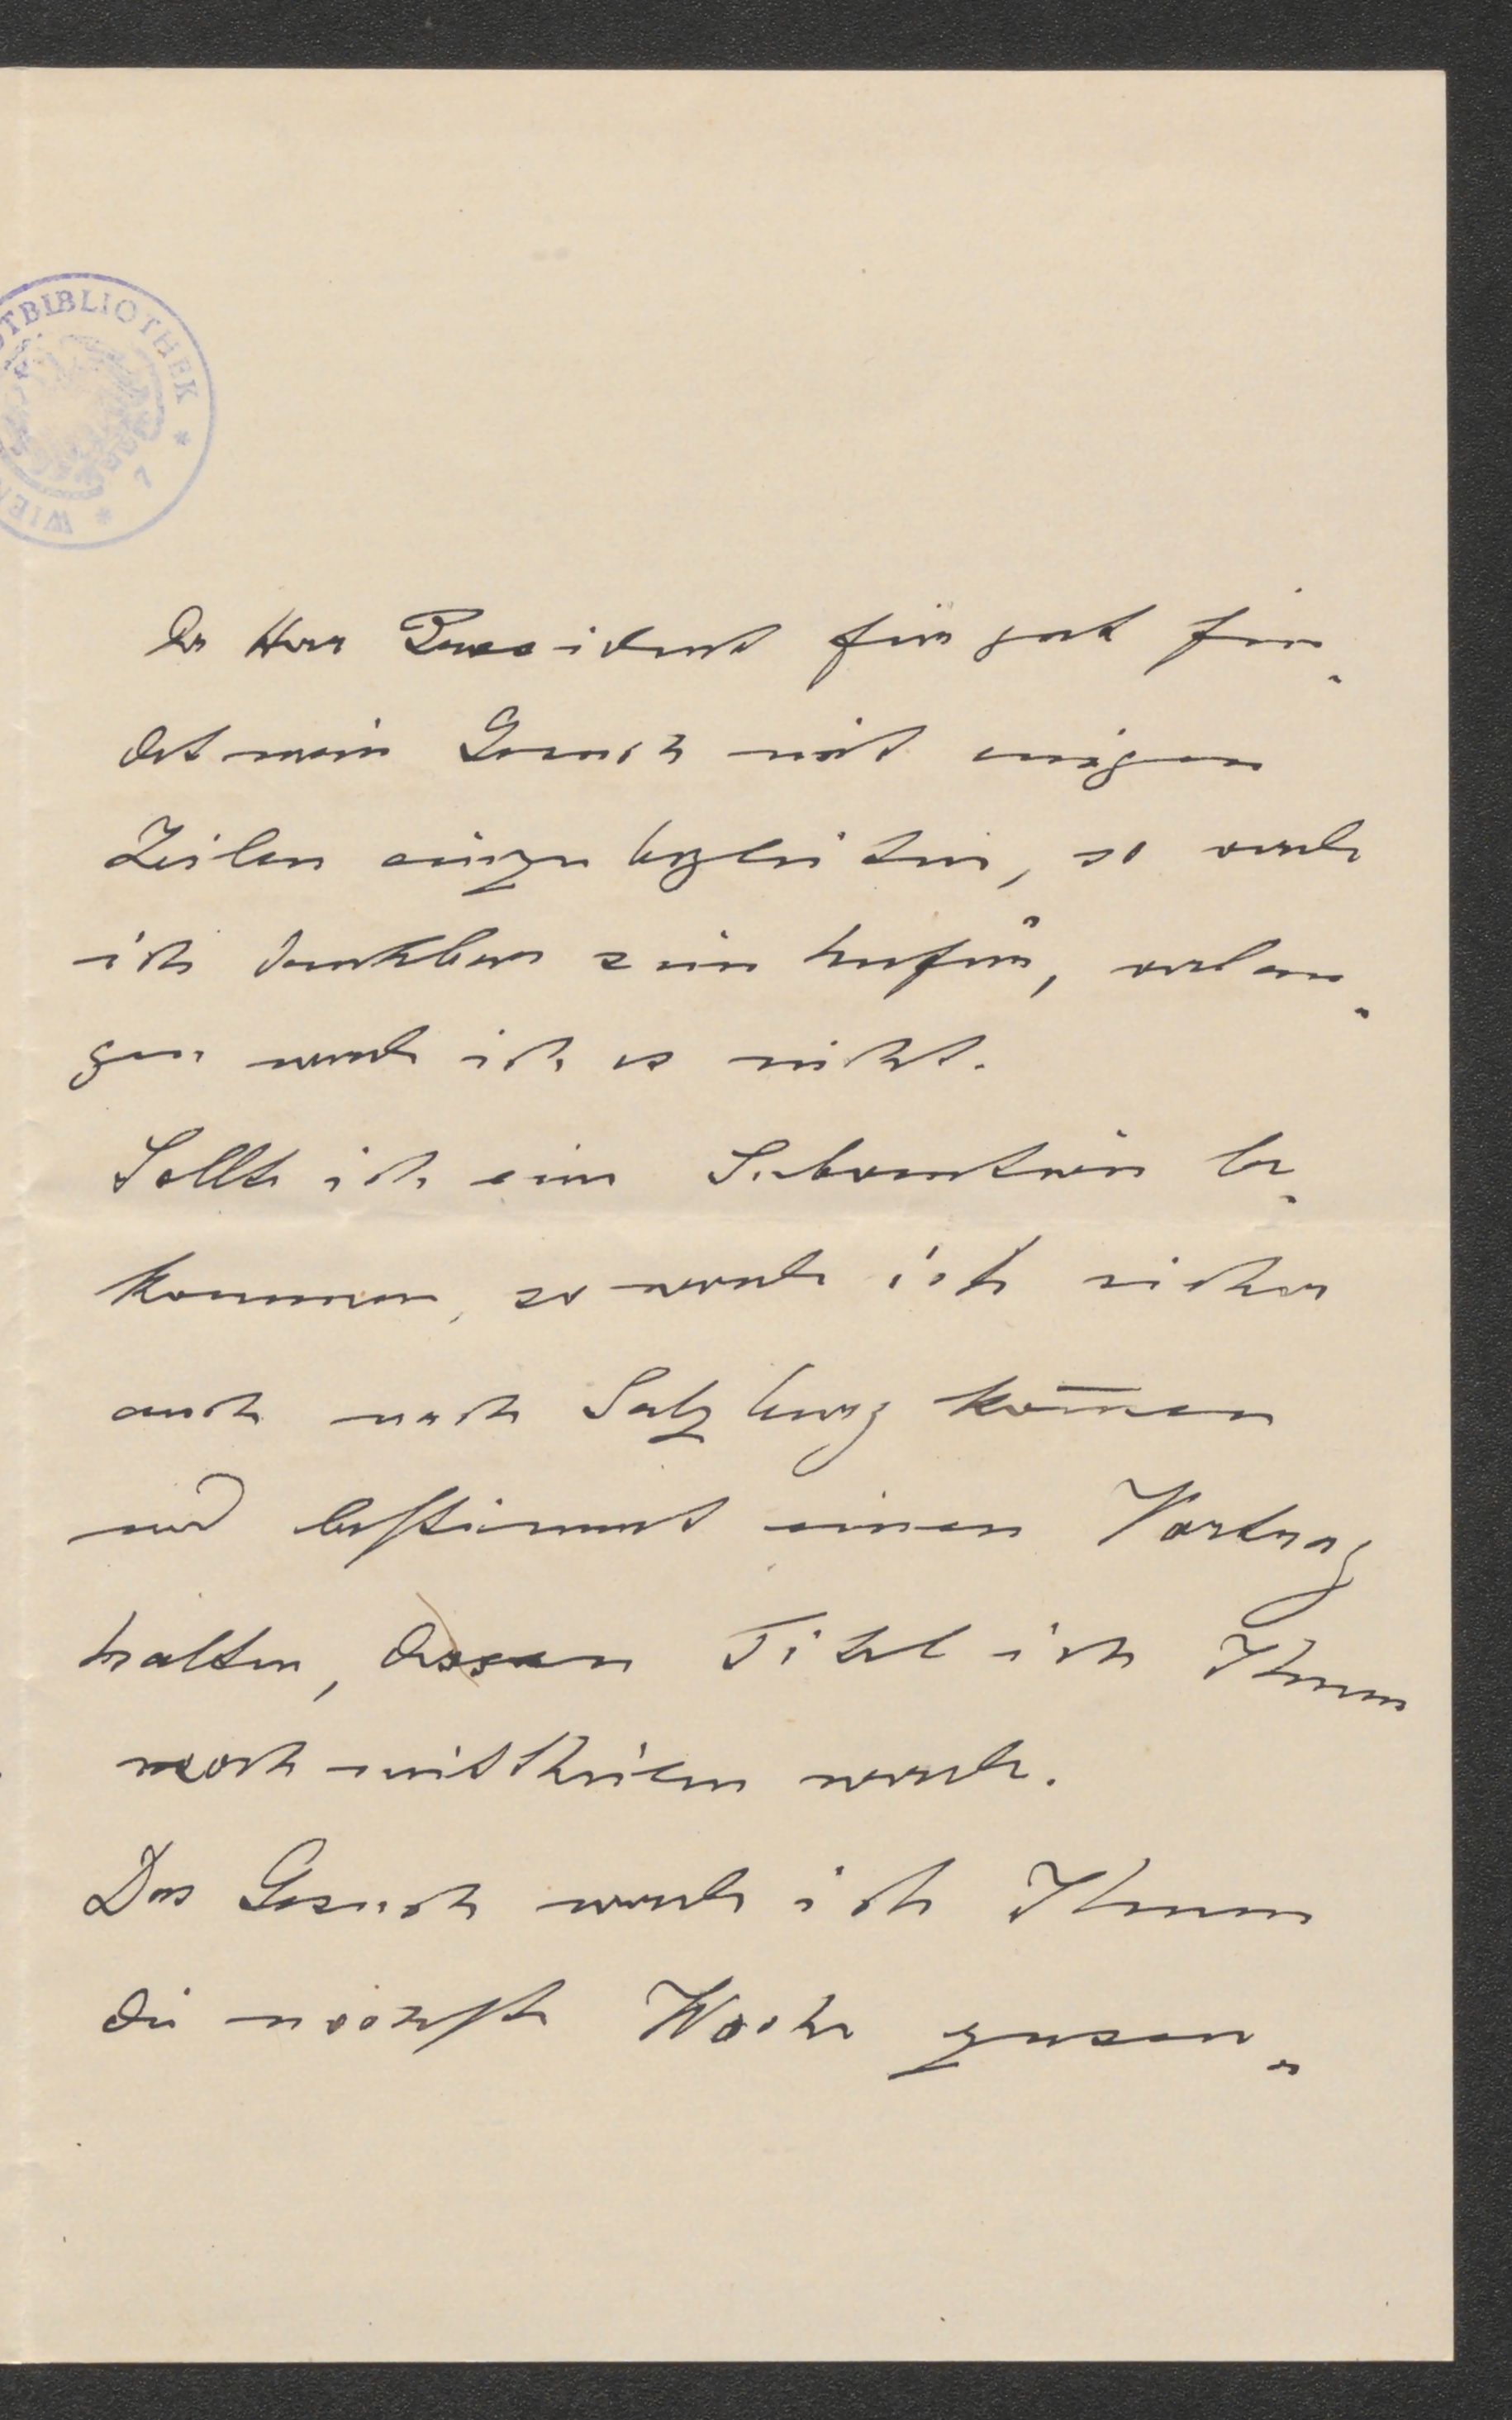 TBIBLIOTHEK * 7 * WIEN
der Herr Praesident für gut fin-
det mein Gesuch mit einigen
Zeilen einzubegleiten, so werde
ich dankbar sein hiefür, verlan-
gen werde ich es nicht.
Sollte ich eine Subvention be-
kommen, so werde ich sicher
auch nach Salzburg kom̄en
und bestimmt einen Vortrag
halten, dessen Titel ich Ihnen
noch mittheilen werde.
Das Gesuch werde ich Ihnen
die nächste Woche zusen-